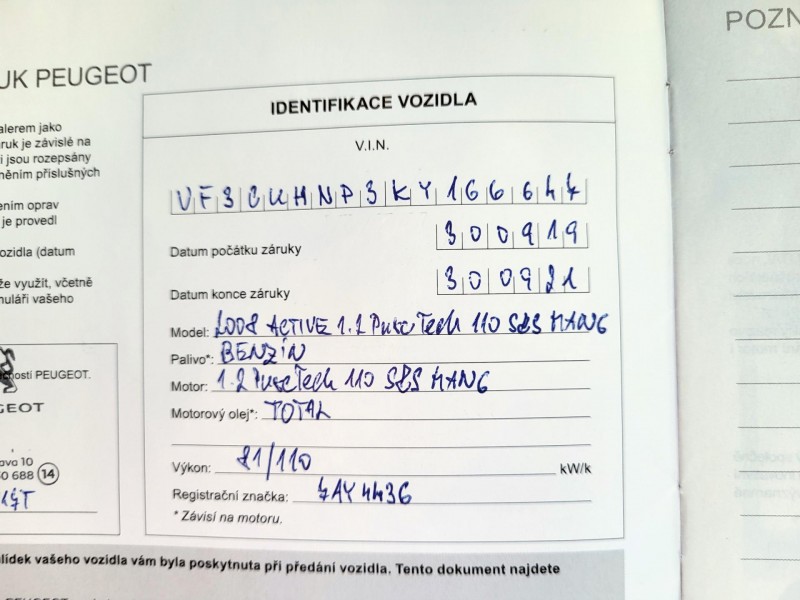 UK PEUGEOT
POZN
alerem jako
ruk je závislé na
i jsou rozepsány
něním příslušných
ením oprav
je provedl
ozidla (datum
že využít, včetně
nuláři vašeho
PEUGEOT.
GEOT
ava 10
0 688 14
IDENTIFIKACE VOZIDLA
V.I.N.
VF3CUHNP3KY166644
Datum počátku záruky 300919
Datum konce záruky 300921
Model: 2008 ACTIVE 1.2 PureTech 110 S&S MAN6
Palivo*: BENZÍN
Motor: 1.2 PureTech 110 S&S MAN6
Motorový olej*: TOTAL
Výkon: 81/110 kW/k
Registrační značka: 7AY4436
* Závisí na motoru.
lídek vašeho vozidla vám byla poskytnuta při předání vozidla. Tento dokument najdete